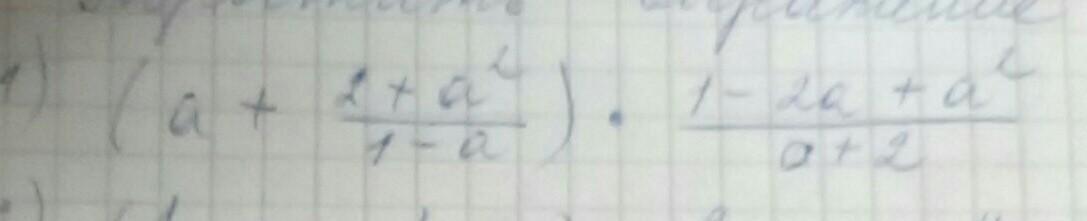 1) (a + \frac{2 + a^2}{1 - a}) \cdot \frac{1 - 2a + a^2}{a + 2}